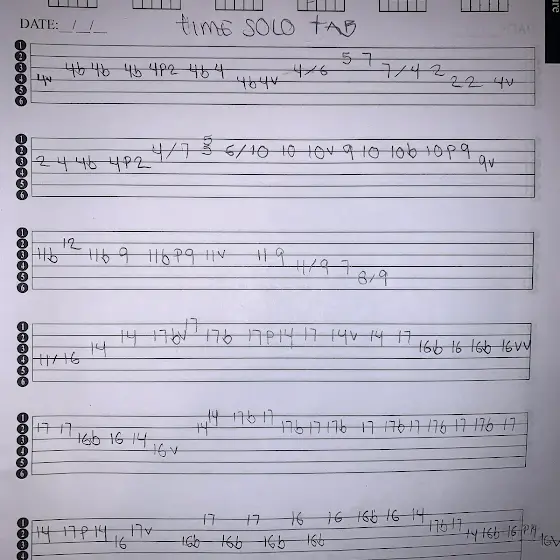 DATE: _/_/_ TIME SOLO TAB
4v 4b 4b 4b 4p2 4b 4 4b 4v 4/6 5 7 7/4 2 2 2 4v
2 4 4b 4p2 4/7 5 5 6/10 10 10v 9 10 10b 10p9 9v
11b 12 11b 9 11bp9 11v 11 9 11/9 7 8/9
11/16 14 14 17bv 17 17b 17p14 17 14v 14 17 16b 16 16b 16vv
17 17 16b 16 14 16v 14 14 17b 17 17b 17 17b 17 17b 17 17b 17 17b 17
14 17p14 16 17v 16b 17 16b 17 16b 16 16b 16 16b 16 14 17b 17 14 16b 16